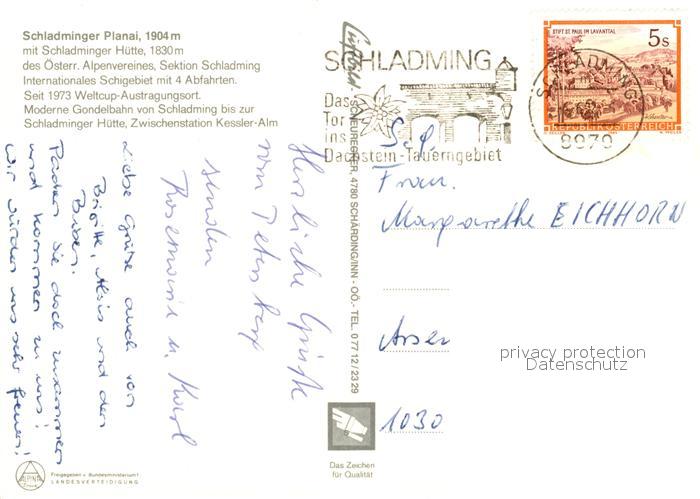 Schladminger Planai, 1904 m
mit Schladminger Hütte, 1830 m
des Österr. Alpenvereines, Sektion Schladming
Internationales Schigebiet mit 4 Abfahrten.
Seit 1973 Weltcup-Austragungsort.
Moderne Gondelbahn von Schladming bis zur
Schladminger Hütte, Zwischenstation Kessler-Alm
Herzliche Grüße
vom Petersberg
senden
Rosemarie u. Karl
Liebe Grüße auch von
Brigitte, Alois und den
Buben.
Packen Sie doch zusammen
und kommen zu uns!
Wir würden uns sehr freuen!
Freigegeben v. Bundesministerium f.
LANDESVERTEIDIGUNG
ALPINA
Luftbild:
SCHNEUREGGER, 4780 SCHÄRDING/INN - OÖ. - TEL. 0 77 12 / 23 29
Das Zeichen
für Qualität
SCHLADMING
Das
Tor
ins
Dachstein-Tauerngebiet
STIFT ST. PAUL IM LAVANTTAL
5 S
REPUBLIK ÖSTERREICH
SCHLADMING
8970
Frau
Margarethe EICHHORN
1030
privacy protection
Datenschutz